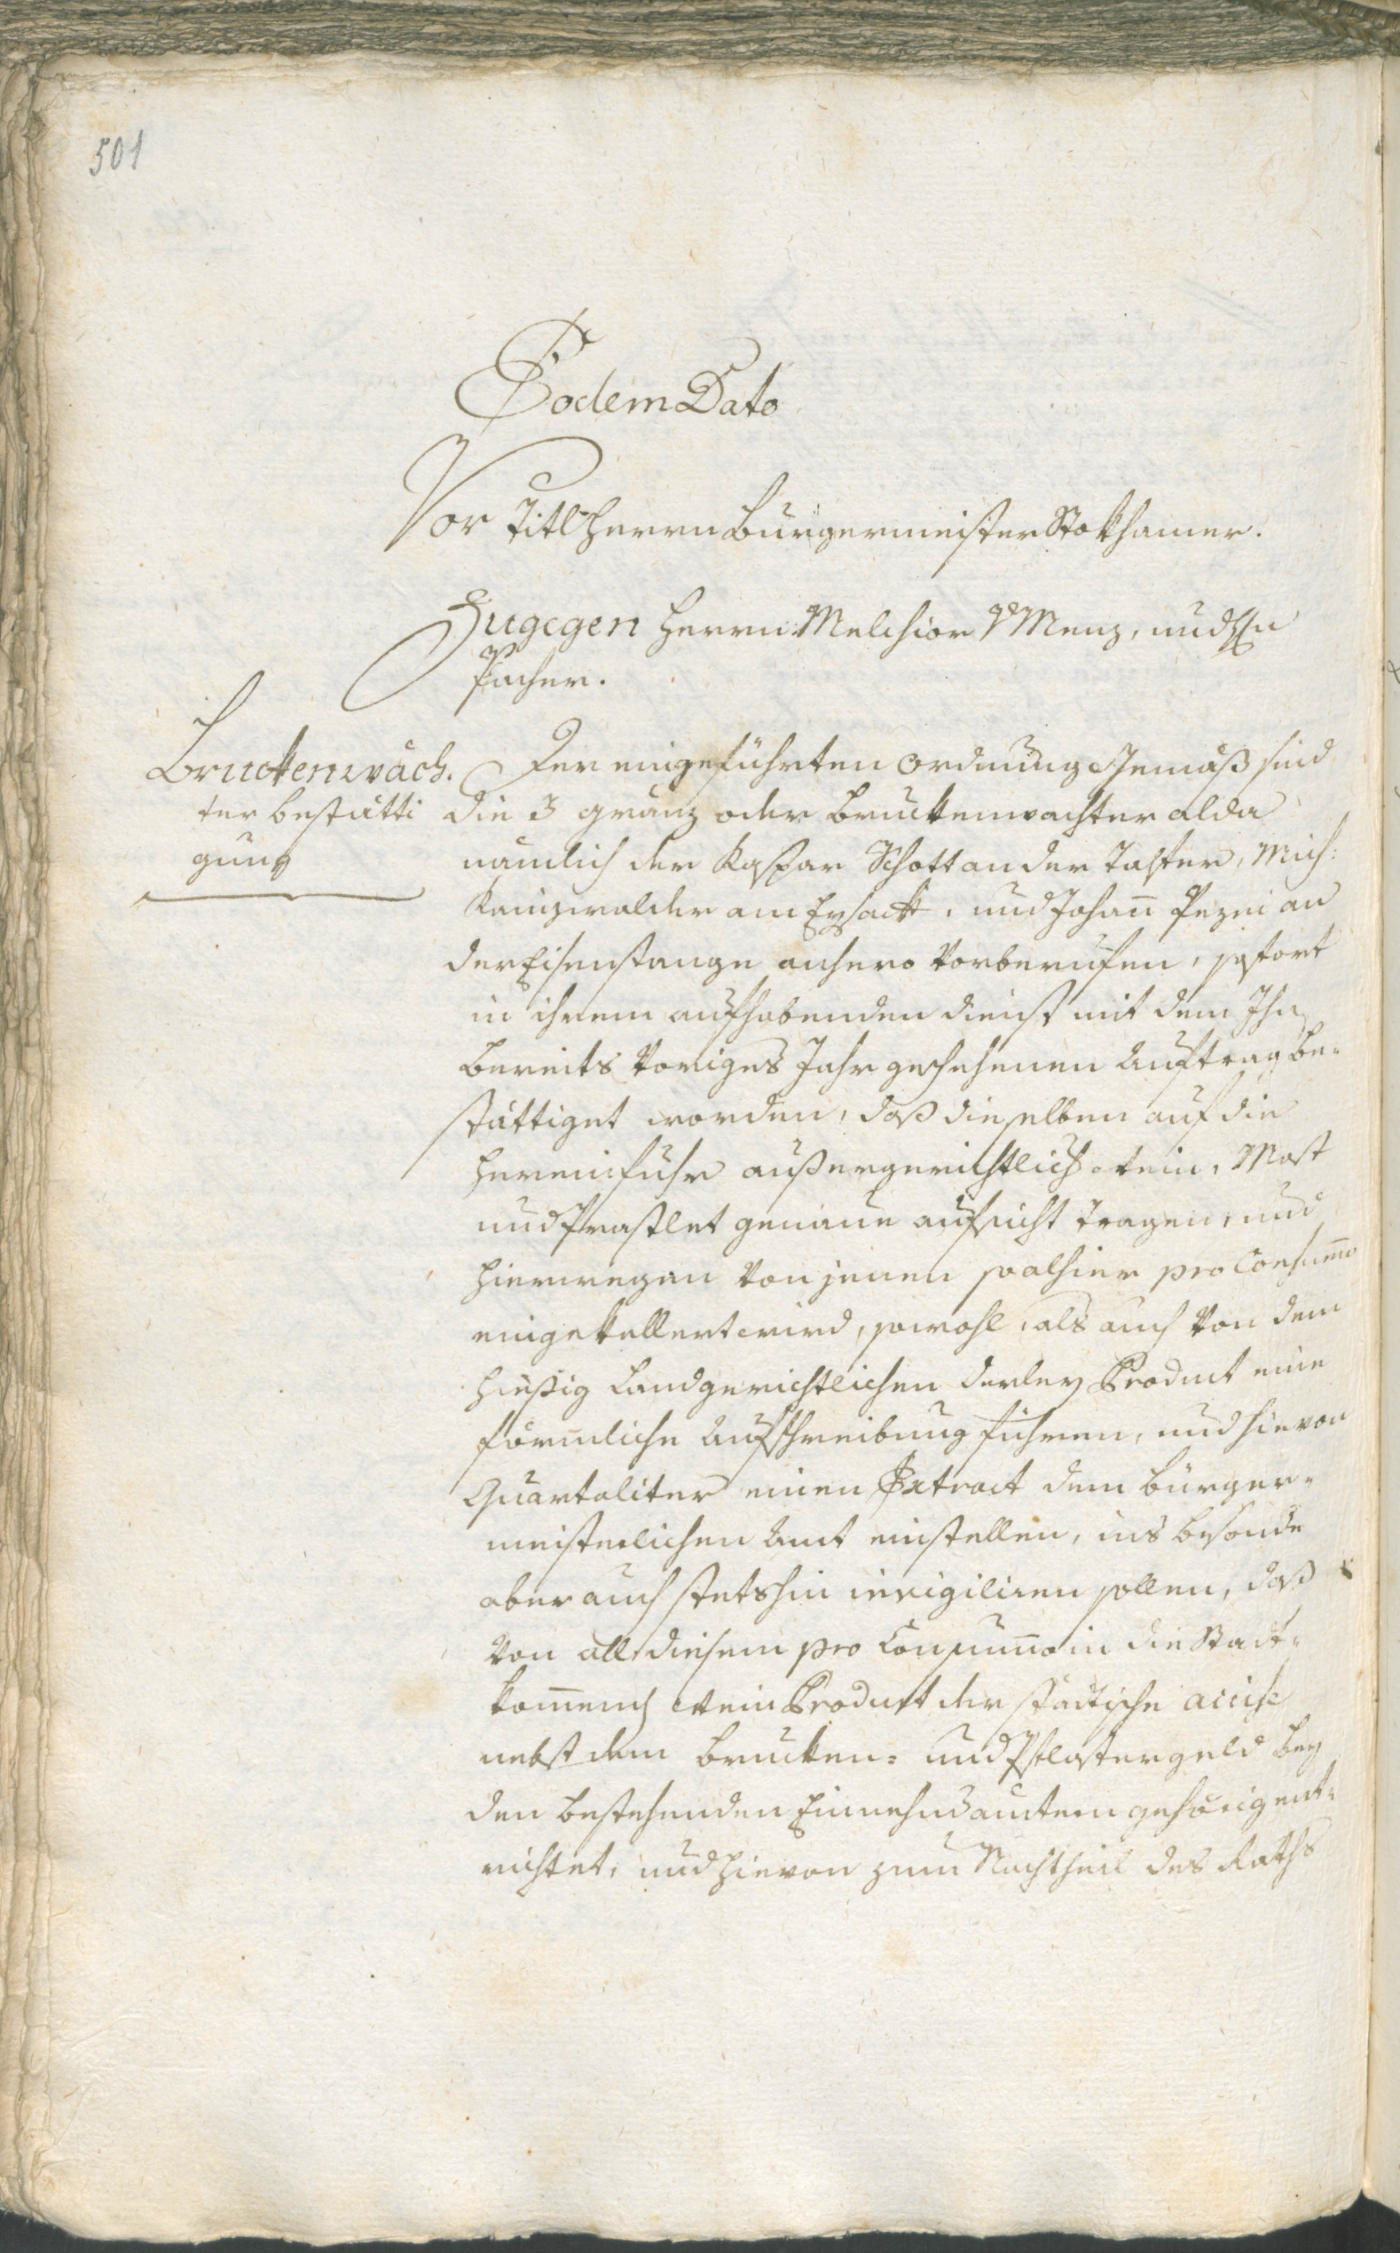 501
Eodem Dato
Vor Titl Herrn Bürgermeister Stokhamer.
Zugegen Herrn Melchior v Menz, und Hn
Pacher.
Bruckenwäch.
ter bestätti
gung
Der eingeführten Ordnung Gemäß sind
die 3 gränz oder Bruckenwachter alda
nämlich der Kaspar Schott an der Talfer, Mich:
Kainzwalder am Eysack, und Johan̄ Pezei an
der Eisenstange anhero Vorberufen, sofort
in ihrem aufhabenden dienst mit dem Ihn
bereits Voriges Jahr geschehenen Auftrag be-
stättiget worden, daß dieselben auf die
hereinfuhr außergerichtlich Wein, Most
und Praslet genaue aufsicht tragen, und
hierwegen Von jenen so alhier pro Consumo
eingekellert wird, sowohl, als auch Von dem
hiesig Landgerichtlichen derley Product eine
förmliche Aufschreibung führen, und hievon
Quartaliter einen Extract dem Bürger-
meisterlichen Amt einstellen, ins besonde
aber auch stetshin invigiliren sollen, daß
Von all diesem pro Consumo in die Stadt-
kom̄end Wein Product der städtische accise
nebst dem Brucken- und Pflastergeld bey
den bestehenden Einnehmsamtern gehörig ent-
richtet, und hievon zum Nachtheil des Raths